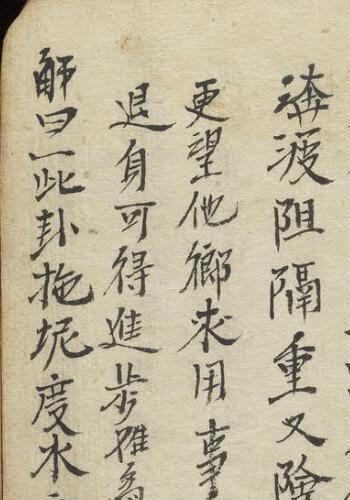 渀波阻隔重又險
更望他鄉求用事
退身可得進步難
解曰此卦拖坭度水